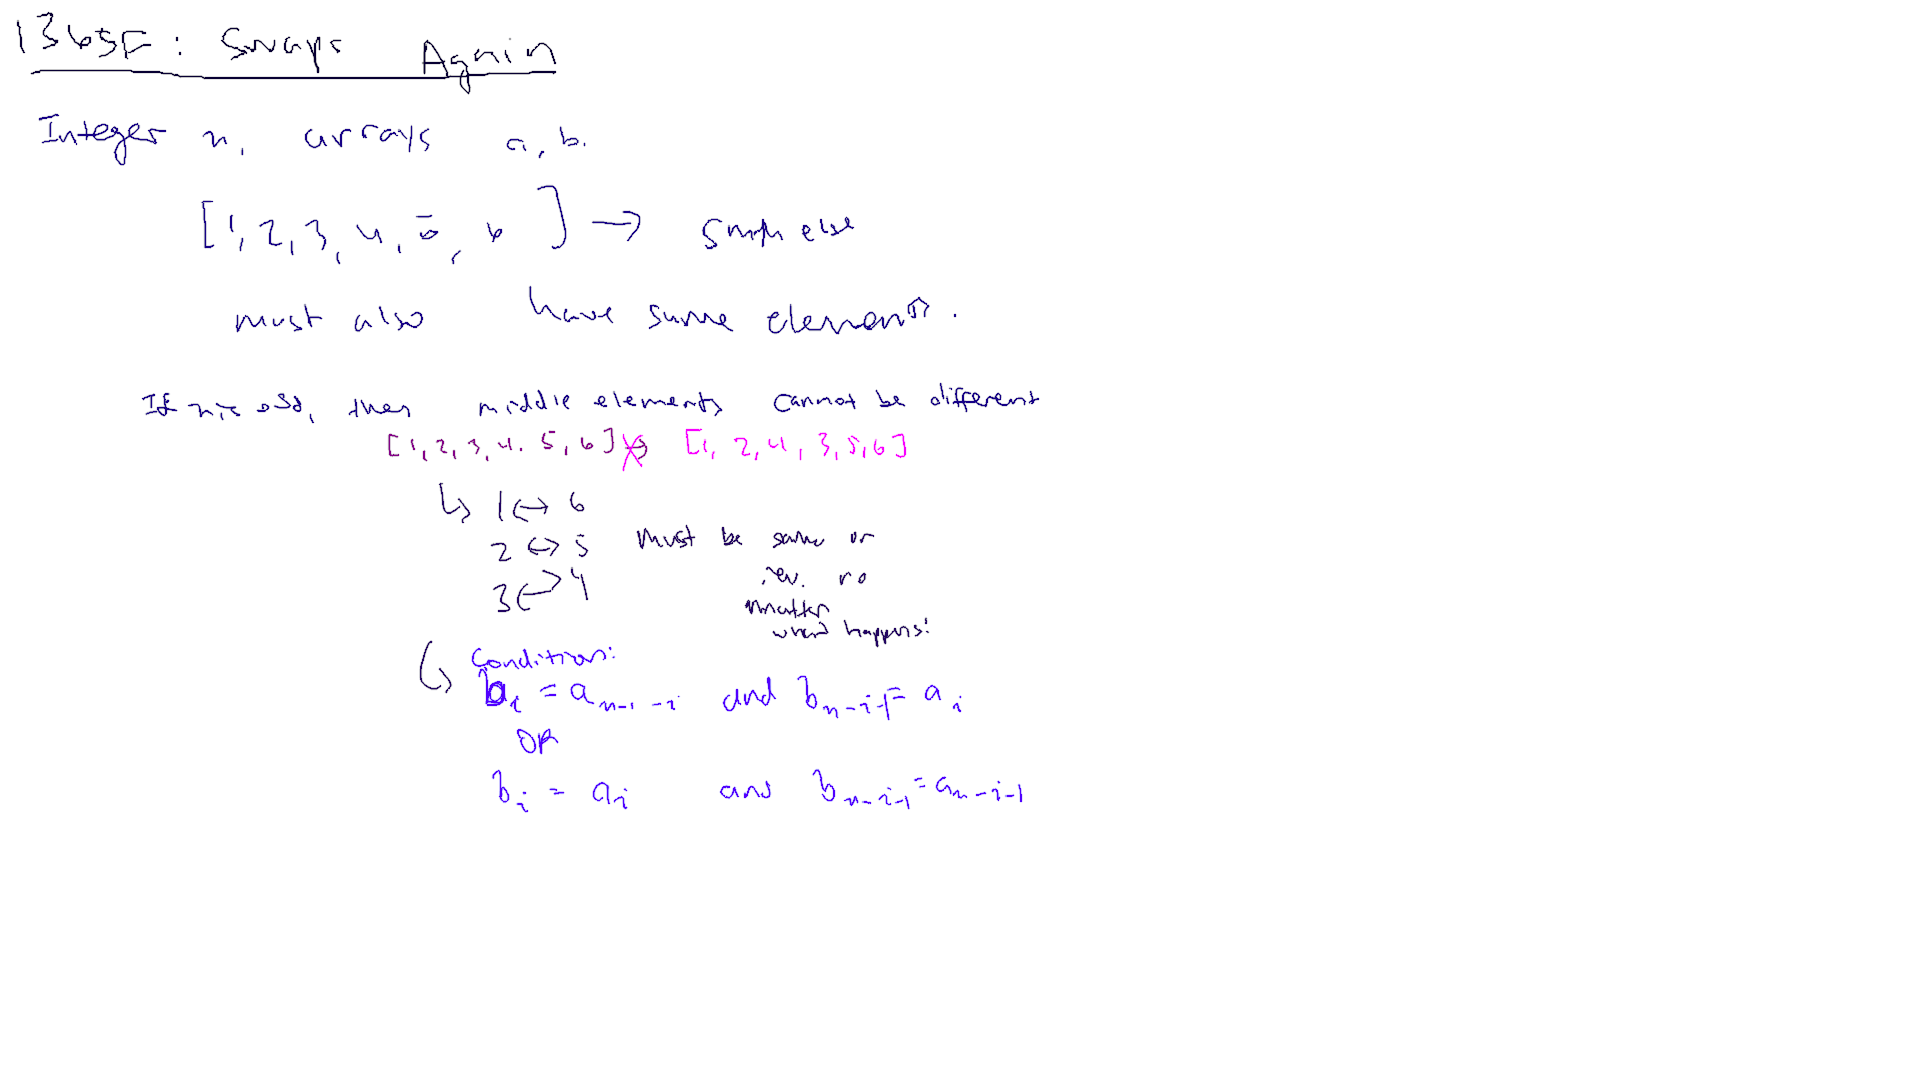 1365F: Swaps Again
Integer n, arrays a, b.
[1, 2, 3, 4, 5, 6] → smth else
must also have same elements.
If n is odd, then middle elements cannot be different
[1, 2, 3, 4, 5, 6] → [1, 2, 4, 3, 5, 6]
↳ 1 ↔ 6
2 ↔ 5 Must be same or
3 ↔ 4 rev. no
matter
what happens!
↳ Condition:
b_i = a_{n-1-i} and b_{n-i-1} = a_i
OR
b_i = a_i and b_{n-i-1} = a_{n-i-1}